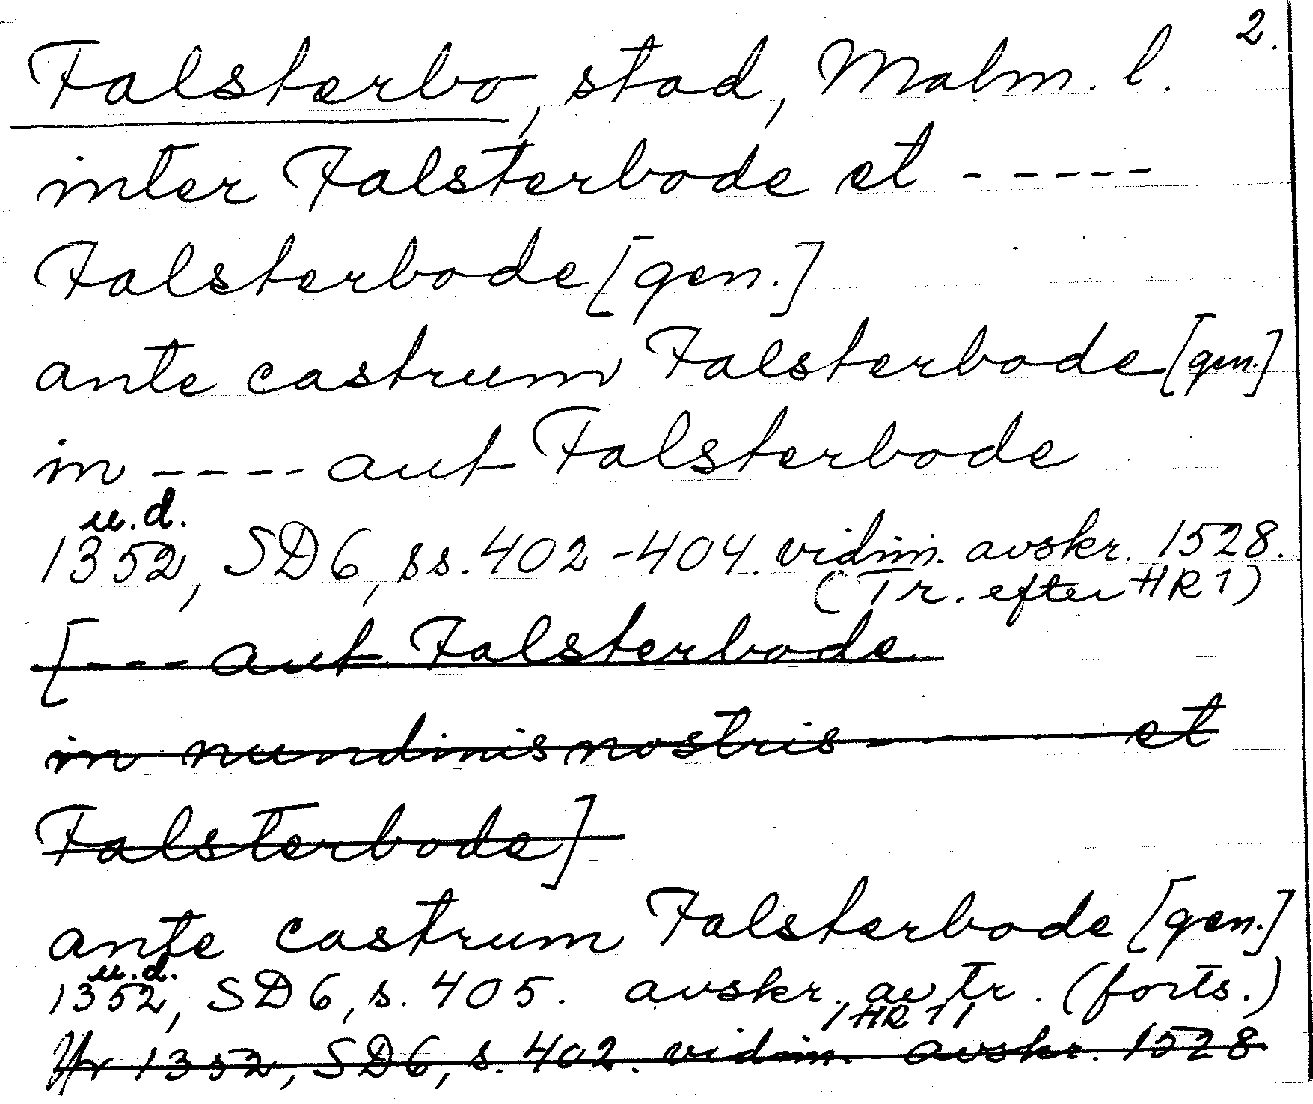 2.
Falsterbo, stad, Malm. l.
inter Falsterbode et -----
Falsterbode [gen.]
ante castrum Falsterbode [gen.]
in ---- aut Falsterbode
u.d.
1352, SD6, ss. 402-404. vidim. avskr. 1528.
(Tr. efter HR 1)
[--- aut Falsterbode
in nundinis nostris ——— et
Falsterbode]
ante castrum Falsterbode [gen.]
u.d.
1352, SD6, s. 405. avskr. av tr. (forts.)
/HR 1/
Jfr 1352, SD6, s. 402. vidim. avskr. 1528